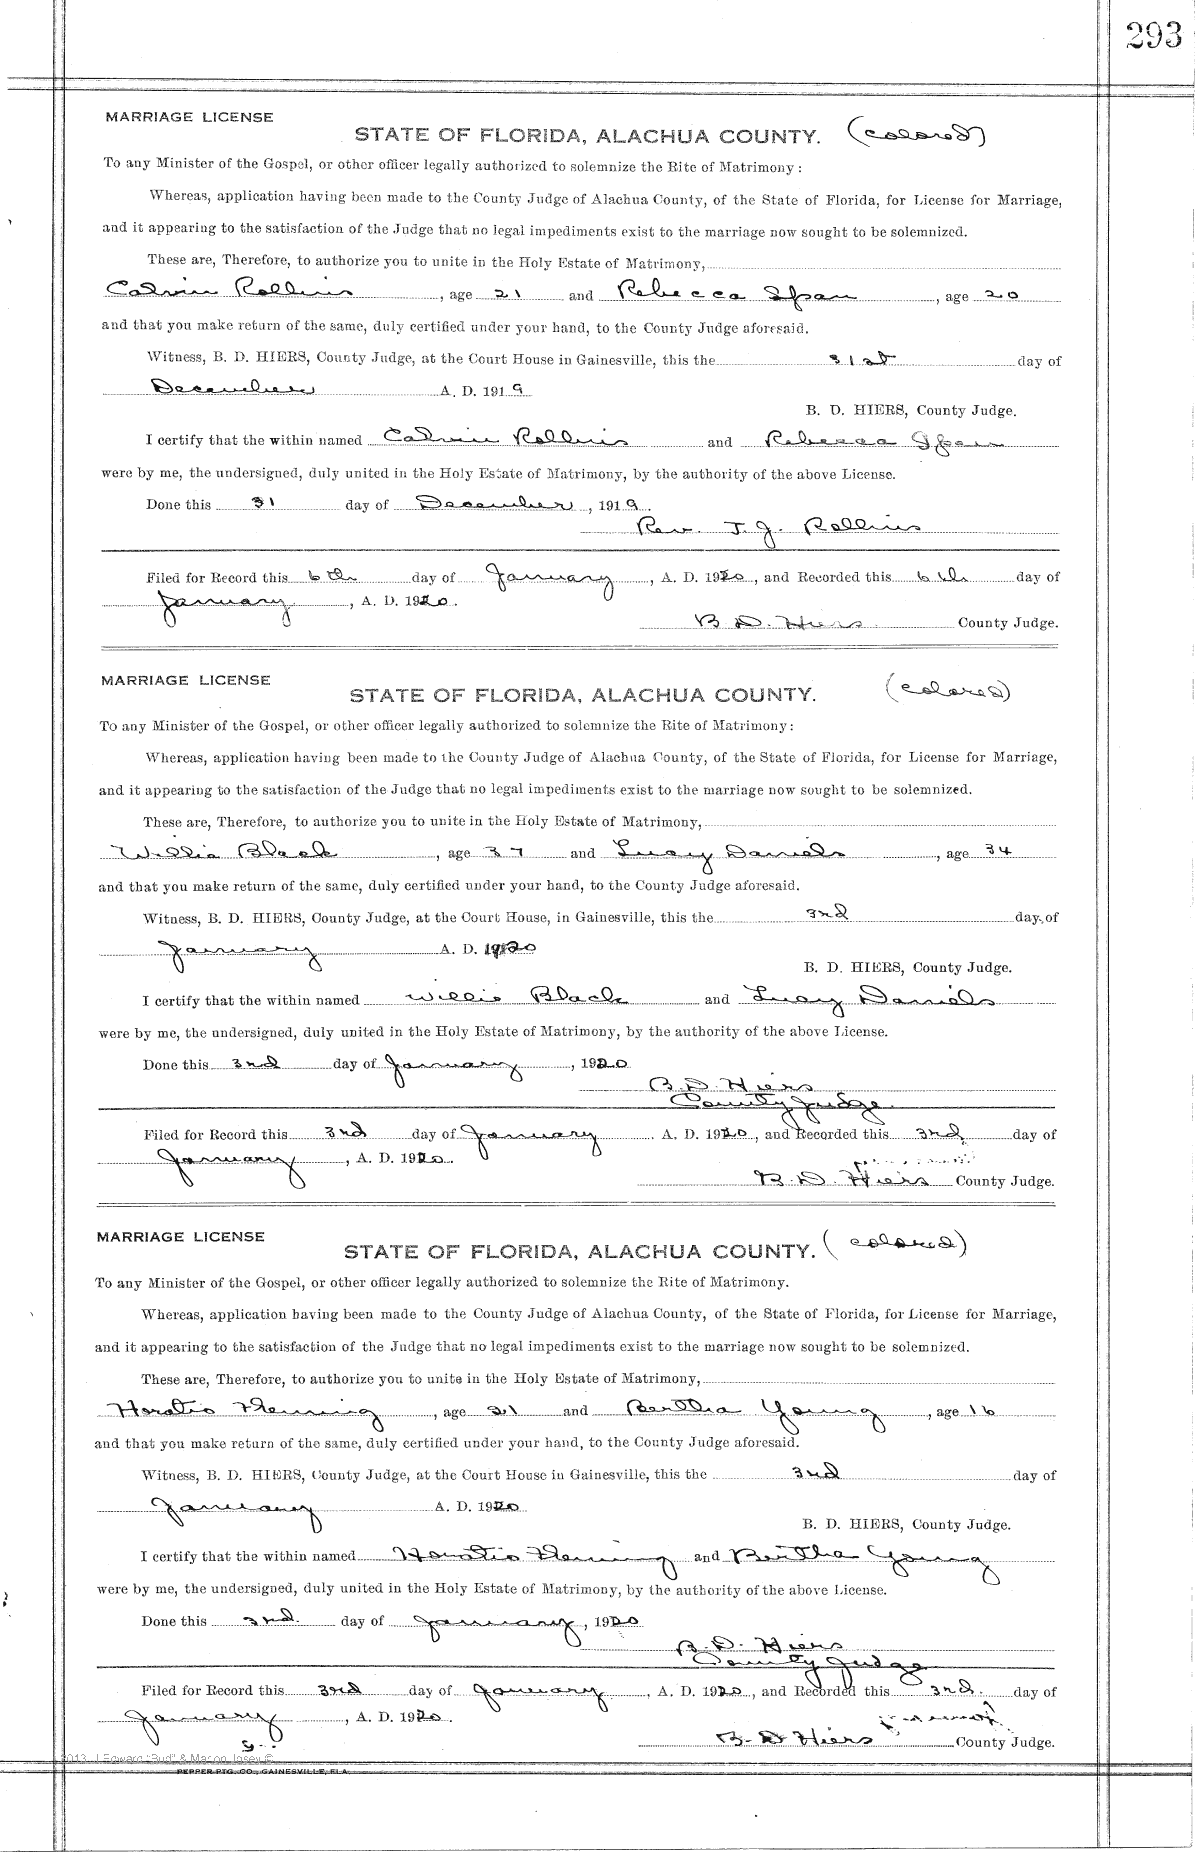 293
MARRIAGE LICENSE
STATE OF FLORIDA, ALACHUA COUNTY. (colored)
To any Minister of the Gospel, or other officer legally authorized to solemnize the Rite of Matrimony:
Whereas, application having been made to the County Judge of Alachua County, of the State of Florida, for License for Marriage,
and it appearing to the satisfaction of the Judge that no legal impediments exist to the marriage now sought to be solemnized.
These are, Therefore, to authorize you to unite in the Holy Estate of Matrimony,
Calvin Rollins, age 21 and Rebecca Span, age 20
and that you make return of the same, duly certified under your hand, to the County Judge aforesaid.
Witness, B. D. HIERS, County Judge, at the Court House in Gainesville, this the 31st day of
December A. D. 1919
B. D. HIERS, County Judge.
I certify that the within named Calvin Rollins and Rebecca Span
were by me, the undersigned, duly united in the Holy Estate of Matrimony, by the authority of the above License.
Done this 31 day of December, 1919.
Rev. J. J. Rollins
Filed for Record this 6th day of January, A. D. 1920, and Recorded this 6th day of
January, A. D. 1920.
B D. Hiers County Judge.
MARRIAGE LICENSE
STATE OF FLORIDA, ALACHUA COUNTY. (colored)
To any Minister of the Gospel, or other officer legally authorized to solemnize the Rite of Matrimony:
Whereas, application having been made to the County Judge of Alachua County, of the State of Florida, for License for Marriage,
and it appearing to the satisfaction of the Judge that no legal impediments exist to the marriage now sought to be solemnized.
These are, Therefore, to authorize you to unite in the Holy Estate of Matrimony,
Willie Black, age 37 and Lucy Daniels, age 34
and that you make return of the same, duly certified under your hand, to the County Judge aforesaid.
Witness, B. D. HIERS, County Judge, at the Court House, in Gainesville, this the 3rd day of
January A. D. 1920
B. D. HIERS, County Judge.
I certify that the within named Willie Black and Lucy Daniels
were by me, the undersigned, duly united in the Holy Estate of Matrimony, by the authority of the above License.
Done this 3rd day of January, 1920
B. D. Hiers
County Judge.
Filed for Record this 3rd day of January. A. D. 1920, and Recorded this 3rd day of
January, A. D. 1920.
B. D. Hiers County Judge.
MARRIAGE LICENSE
STATE OF FLORIDA, ALACHUA COUNTY. (colored)
To any Minister of the Gospel, or other officer legally authorized to solemnize the Rite of Matrimony.
Whereas, application having been made to the County Judge of Alachua County, of the State of Florida, for License for Marriage,
and it appearing to the satisfaction of the Judge that no legal impediments exist to the marriage now sought to be solemnized.
These are, Therefore, to authorize you to unite in the Holy Estate of Matrimony,
Horatio Fleming, age 21 and Bertha Young, age 16
and that you make return of the same, duly certified under your hand, to the County Judge aforesaid.
Witness, B. D. HIERS, County Judge, at the Court House in Gainesville, this the 3rd day of
January A. D. 1920
B. D. HIERS, County Judge.
I certify that the within named Horatio Fleming and Bertha Young
were by me, the undersigned, duly united in the Holy Estate of Matrimony, by the authority of the above License.
Done this 3rd. day of January, 1920
B. D. Hiers
County Judge
Filed for Record this 3rd day of January, A. D. 1920, and Recorded this 3rd. day of
January, A. D. 1920.
B. D Hiers County Judge.
2013 J Edward "Bud" & Macon Josey ©
PEPPER PTG. CO., GAINESVILLE, FLA.